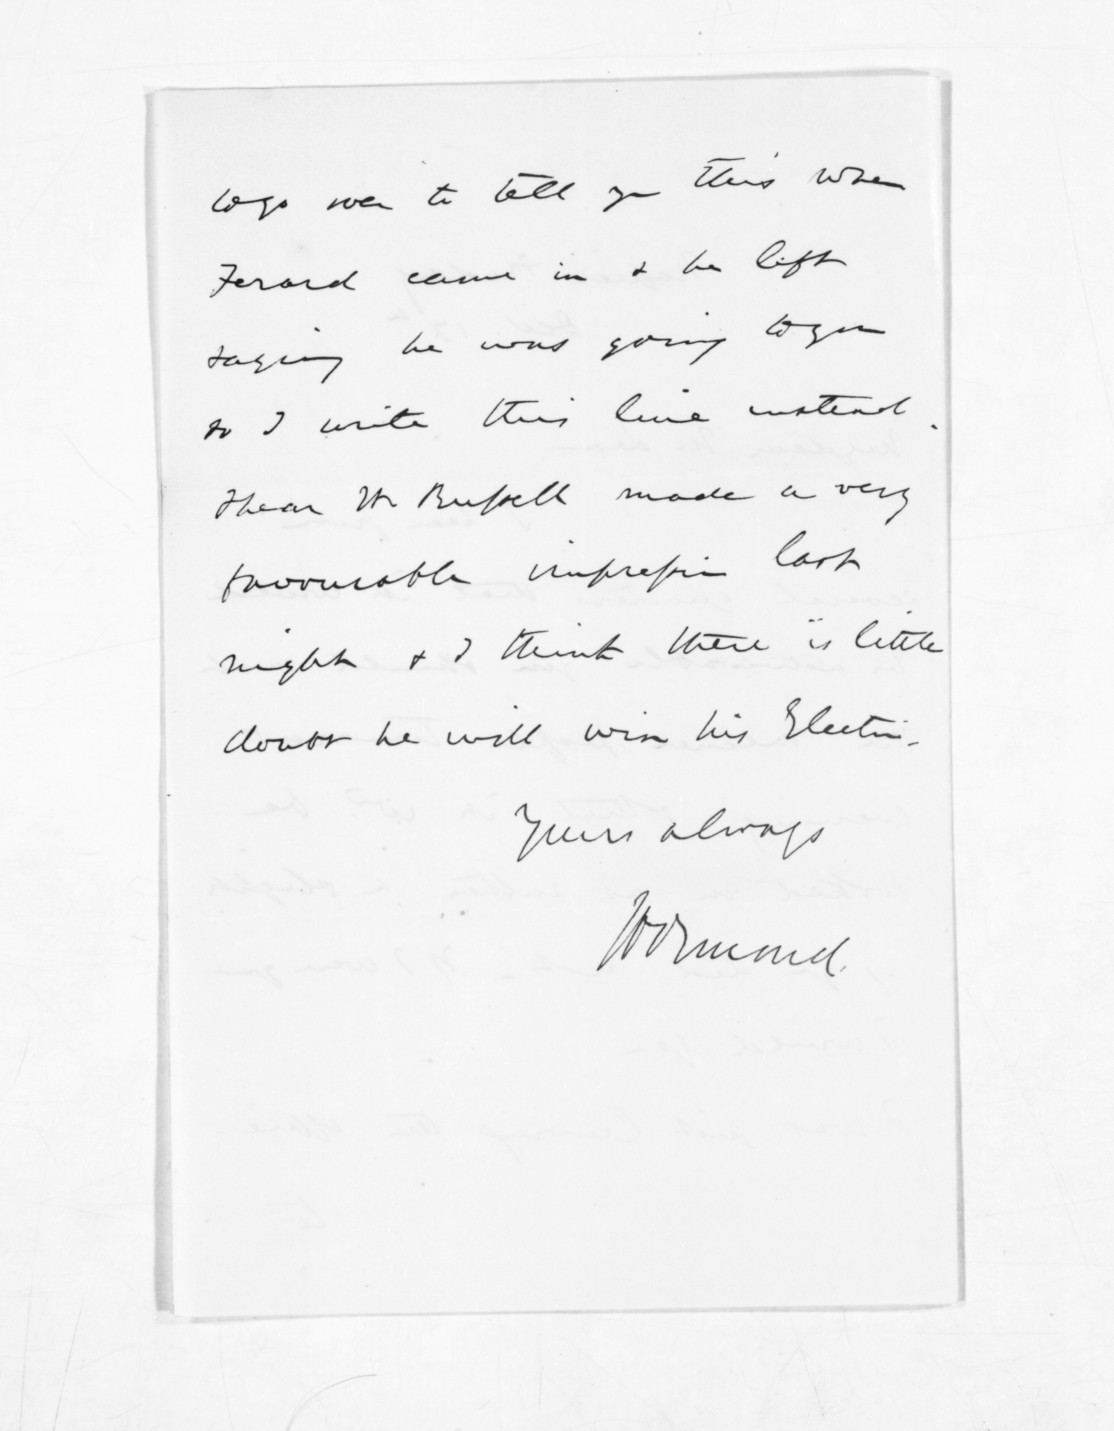 to go over to tell you this when
Ferard came in & he left
saying he was going to you
so I write this line instead.
I hear W. Russell made a very
favourable impression last
night & I think there is little
doubt he will win his Election.
Yours always
JD Ormond.